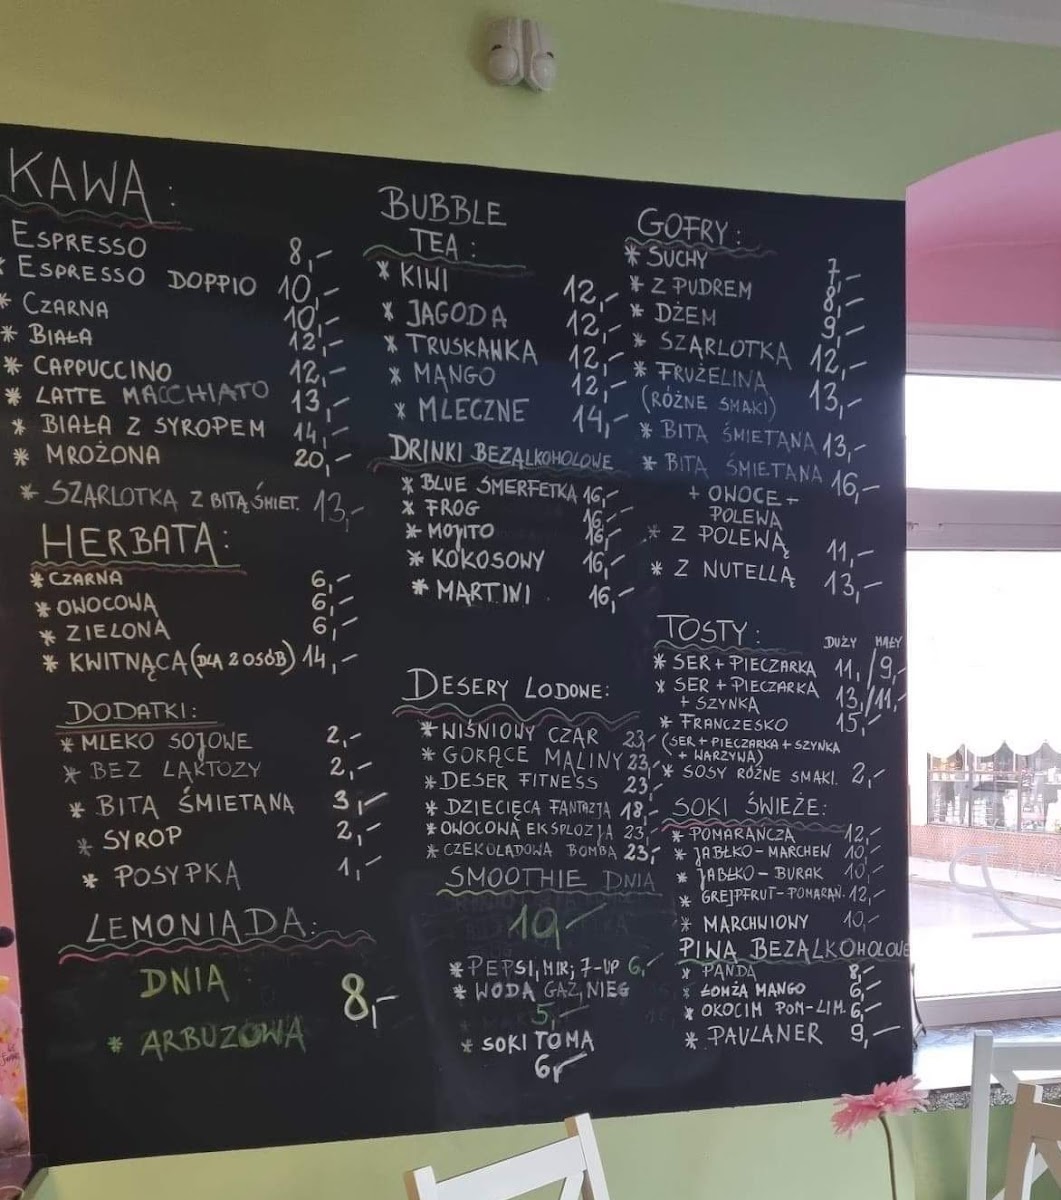 KAWA:
ESPRESSO 8,-
* ESPRESSO DOPPIO 10,-
* CZARNA 10,-
* BIAŁA 12,-
* CAPPUCCINO 12,-
* LATTE MACCHIATO 13,-
* BIAŁA Z SYROPEM 14,-
* MROŻONA 20,-
* SZARLOTKA Z BITĄ ŚMIET. 13,-
HERBATA:
* CZARNA 6,-
* OWOCOWA 6,-
* ZIELONA 6,-
* KWITNĄCA (DLA 2 OSÓB) 14,-
DODATKI:
* MLEKO SOJOWE 2,-
* BEZ LAKTOZY 2,-
* BITA ŚMIETANA 3,-
* SYROP 2,-
* POSYPKA 1,-
LEMONIADA:
DNIA 8,-
* ARBUZOWA
BUBBLE
TEA:
* KIWI 12,-
* JAGODA 12,-
* TRUSKAWKA 12,-
* MANGO 12,-
* MLECZNE 14,-
DRINKI BEZALKOHOLOWE
* BLUE SMERFETKA 16,-
* FROG 16,-
* MOJITO 16,-
* KOKOSOWY 16,-
* MARTINI 16,-
DESERY LODOWE:
* WIŚNIOWY CZAR 23,-
* GORĄCE MALINY 23,-
* DESER FITNESS 23,-
* DZIECIĘCA FANTAZJA 18,-
* OWOCOWA EKSPLOZJA 23,-
* CZEKOLADOWA BOMBA 23,-
SMOOTHIE DNIA
19,-
* PEPSI, MIR; 7-UP 6,-
* WODA GAZ, NIEG
5,-
* SOKI TOMA
6,-
GOFRY:
* SUCHY 7,-
* Z PUDREM 8,-
* DŻEM 9,-
* SZARLOTKA 12,-
* FRUŻELINA 13,-
(RÓŻNE SMAKI)
* BITA ŚMIETANA 13,-
* BITA ŚMIETANA 16,-
+ OWOCE +
POLEWA
* Z POLEWĄ 11,-
* Z NUTELLĄ 13,-
TOSTY: DUŻY MAŁY
* SER + PIECZARKA 11,/9,-
* SER + PIECZARKA 13,/11,-
+ SZYNKA
* FRANCZESKO 15,-
(SER + PIECZARKA + SZYNKA
+ WARZYWA)
* SOSY RÓŻNE SMAKI. 2,-
SOKI ŚWIEŻE:
* POMARAŃCZA 12,-
* JABŁKO-MARCHEW 10,-
* JABŁKO-BURAK 10,-
* GREJPFRUT-POMARAŃ. 12,-
* MARCHWIOWY 10,-
PIWA BEZALKOHOLOWE
* PANDA 8,-
* ŁOMŻA MANGO 6,-
* OKOCIM POM-LIM. 6,-
* PAULANER 9,-